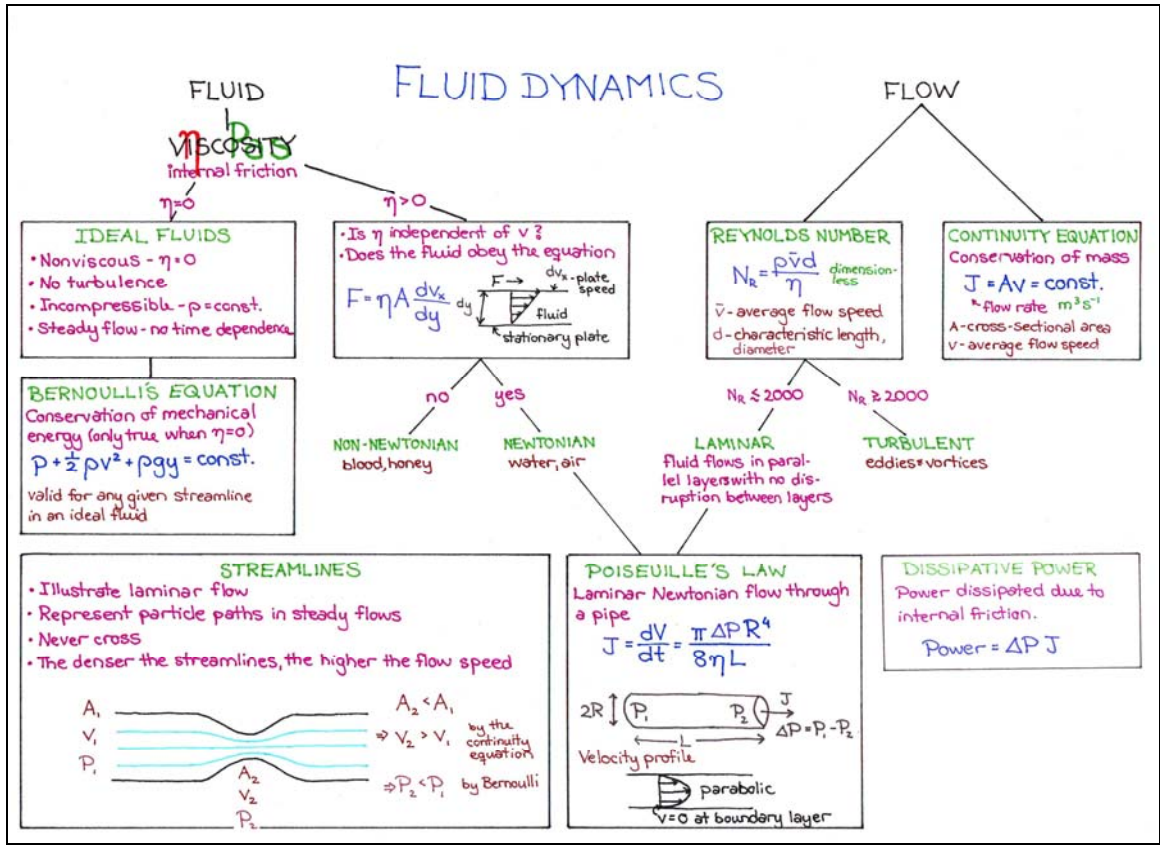 FLUID DYNAMICS
FLUID
VISCOSITY
η Pas
internal friction
η=0
η>0
IDEAL FLUIDS
• Nonviscous - η=0
• No turbulence
• Incompressible - ρ=const.
• Steady flow - no time dependence
BERNOULLI'S EQUATION
Conservation of mechanical
energy (only true when η=0)
P + ½ ρv² + ρgy = const.
valid for any given streamline
in an ideal fluid
• Is η independent of v?
• Does the fluid obey the equation
F = ηA dvₓ/dy
F →
dvₓ-plate
speed
dy
fluid
stationary plate
no
yes
NON-NEWTONIAN
blood, honey
NEWTONIAN
water, air
FLOW
REYNOLDS NUMBER
N_R = ρv̄d/η
dimension-
less
v̄ - average flow speed
d - characteristic length,
diameter
N_R ≲ 2000
N_R ≳ 2000
LAMINAR
fluid flows in paral-
lel layers with no dis-
ruption between layers
TURBULENT
eddies & vortices
CONTINUITY EQUATION
Conservation of mass
J = Av = const.
flow rate m³s⁻¹
A - cross-sectional area
v - average flow speed
STREAMLINES
• Illustrate laminar flow
• Represent particle paths in steady flows
• Never cross
• The denser the streamlines, the higher the flow speed
A₁
V₁
P₁
A₂
V₂
P₂
A₂ < A₁
⇒ V₂ > V₁
by the
continuity
equation
⇒ P₂ < P₁ by Bernoulli
POISEUILLE'S LAW
Laminar Newtonian flow through
a pipe
J = dV/dt = πΔPR⁴/8ηL
2R
P₁
P₂
J
ΔP = P₁ - P₂
L
Velocity profile
parabolic
v=0 at boundary layer
DISSIPATIVE POWER
Power dissipated due to
internal friction.
Power = ΔP J